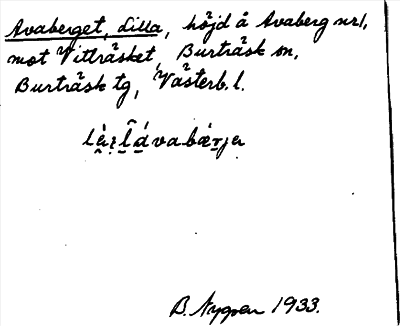 Avaberget, Lilla, höjd å Avaberg nr 1,
mot Vitträsket, Burträsk sn,
Burträsk tg, Västerb. l.
B. Nygren 1933.